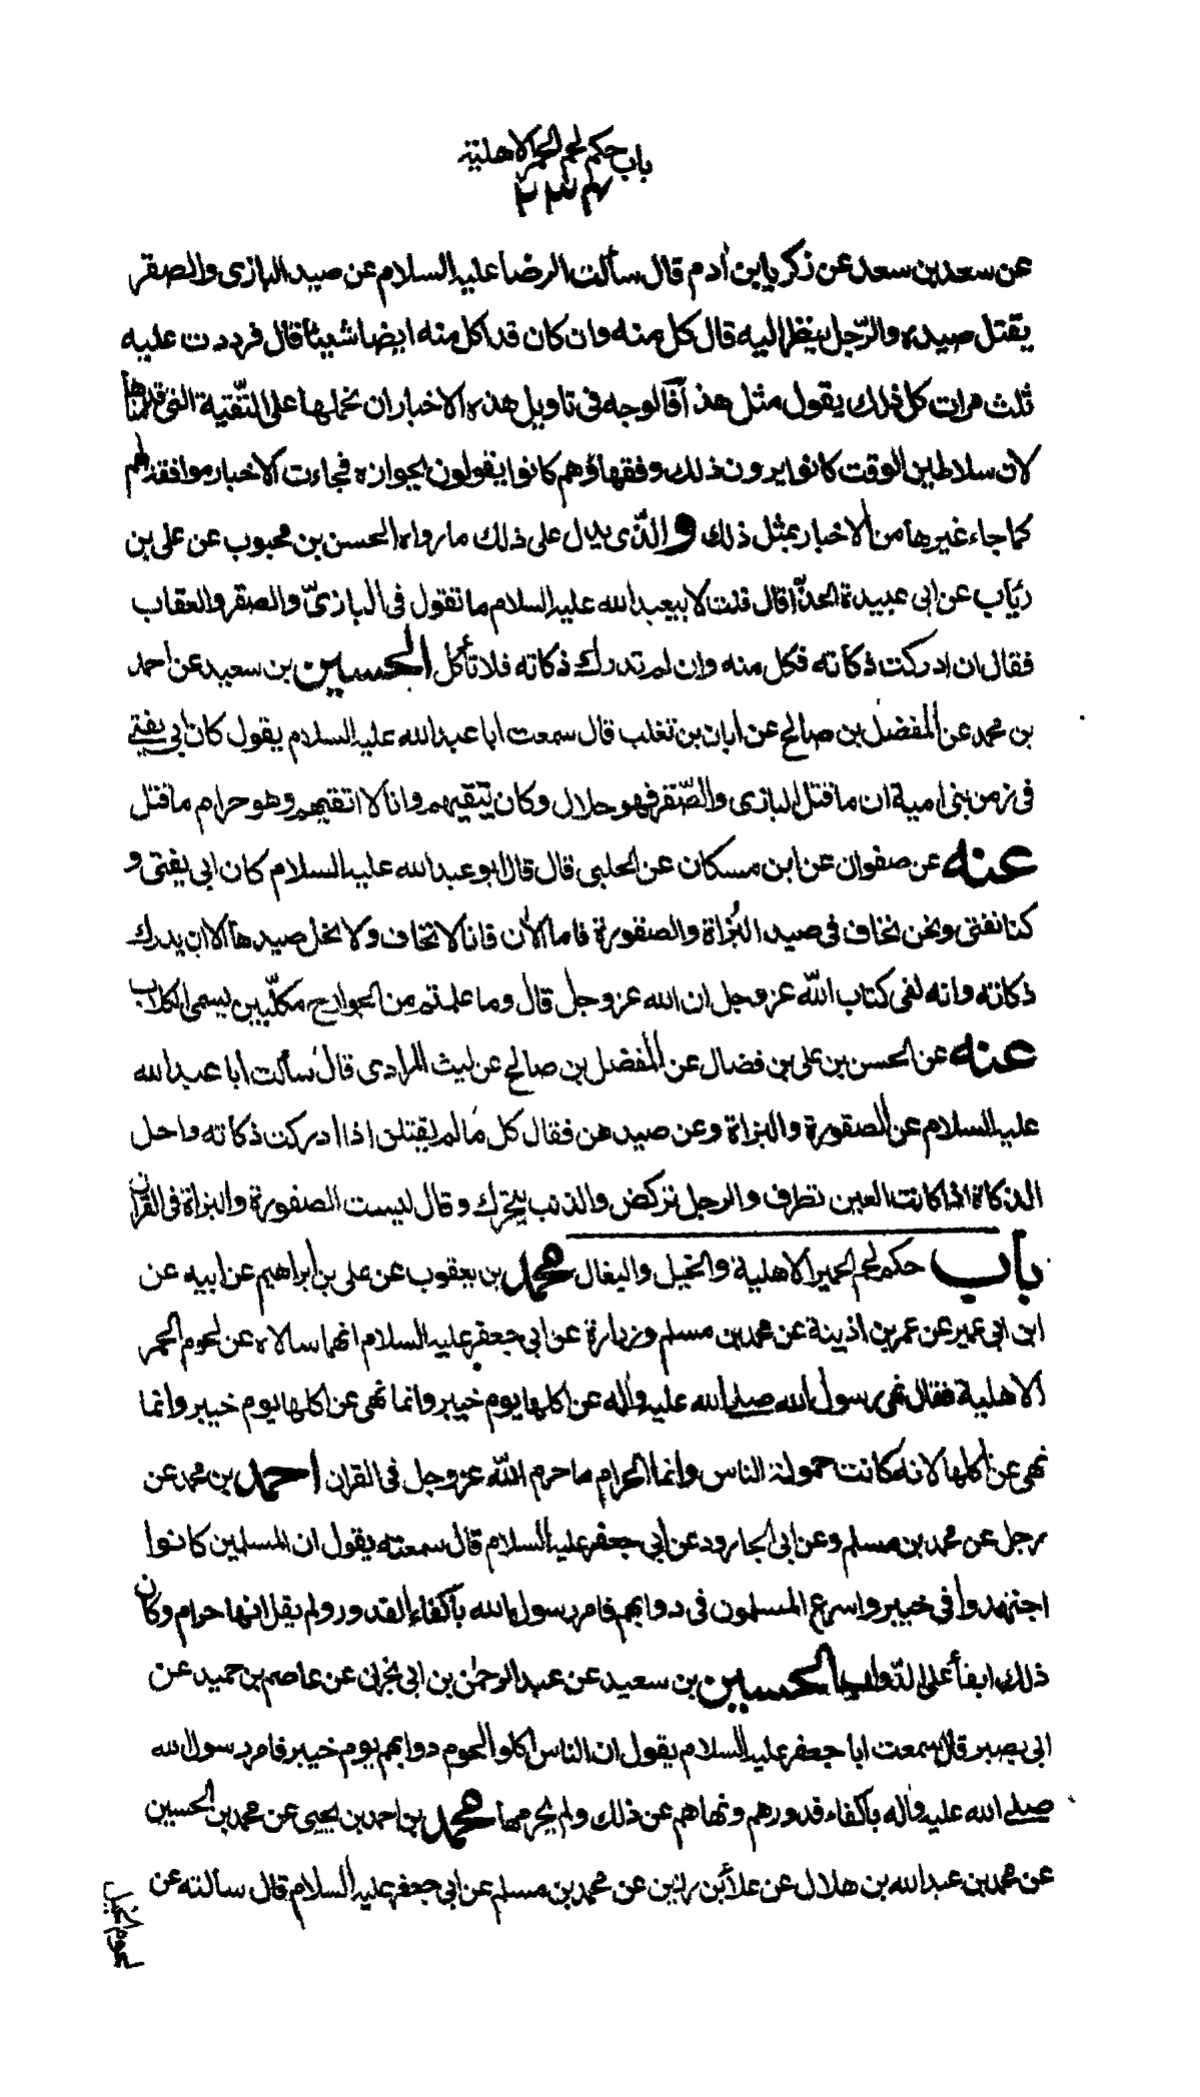 باب حكم لحم الحمر الاهلية
عن سعد بن سعد عن زكريا بن ادم قال سألت الرضا عليه السلام عن صيد البازى والصقر
يقتل صيده والرّجل ينظر اليه قال كل منه وان كان قد اكل منه ايضا شيئا قال فرددت عليه
ثلث مرات كل ذلك يقول مثل هذا فالوجه فى تاويل هذه الاخبار ان نحملها على التّقية التى قدمناها
لان سلاطين الوقت كانوا يرون ذلك وفقهاؤهم كانوا يقولون بجوازه فجاءت الاخبار موافقة لهم
كما جاء غيرها من الاخبار بمثل ذلك والّذى يدل على ذلك ما رواه الحسن بن محبوب عن على بن
رئاب عن ابى عبيدة الحذّا قال قلت لابيعبد الله عليه السلام ما تقول فى البازىّ والصقر والعقاب
فقال ان ادركت ذكاته فكل منه وان لم تدرك ذكاته فلا تأكل الحسين بن سعيد عن احمد
بن محمد عن المفضل بن صالح عن ابان بن تغلب قال سمعت ابا عبد الله عليه السلام يقول كان ابى يفتى
فى زمن بنى امية ان ما قتل البازى والصّقر فهو حلال وكان يتقيهم وانا لا اتقيهم وهو حرام ما قتل
عنه عن صفوان عن ابن مسكان عن الحلبى قال قال ابو عبد الله عليه السلام كان ابى يفتى و
كنا نفتى ونحن نخاف فى صيد البُزاة والصقورة فاما الان فانا لا نخاف ولا يحل صيدها الا ان يدرك
ذكاته وانه لفى كتاب الله عز وجل ان الله عز وجل قال وما علمتم من الجوارح مكلّبين يسمى الكلاب
عنه عن الحسن بن على بن فضال عن المفضل بن صالح عن ليث المرادى قال سألت ابا عبد الله
عليه السلام عن الصقورة والبزاة وعن صيدهن فقال كل ما لم يقتلن اذا ادركت ذكاته واحل
الذكاة اذا كانت العين تطرف والرجل تركض والذنب يتحرك وقال ليست الصقورة والبزاة فى القران
باب حكم لحم الحمير الاهلية والخيل والبغال محمد بن يعقوب عن على بن ابراهيم عن ابيه عن
ابن ابى عمير عن عمر بن اذينة عن محمد بن مسلم وزرارة عن ابى جعفر عليه السلام انهما سالاه عن لحوم الحمر
الاهلية فقال نهى رسول الله صلى الله عليه واله عن اكلها يوم خيبر وانما نهى عن اكلها يوم خيبر وانما
نهى عن اكلها لانه كانت حمولة الناس وانما الحرام ما حرم الله عز وجل فى القران احمد بن محمد عن
رجل عن محمد بن مسلم وعن ابى الجارود عن ابى جعفر عليه السلام قال سمعته يقول ان المسلمين كانوا
اجتهدوا فى خيبر واسرع المسلمون فى دوابهم فامر رسول الله باكفاء القدور ولم يقل انها حرام وكان
ذلك ابقأ على الدّواب الحسين بن سعيد عن عبد الرحمن بن ابى نجران عن عاصم بن حميد عن
ابى بصير قال سمعت ابا جعفر عليه السلام يقول ان الناس اكلوا لحوم دوابهم يوم خيبر فامر رسول الله
صلى الله عليه واله باكفاء قدورهم ونهاهم عن ذلك ولم يحرمها محمد بن احمد بن يحيى عن محمد بن الحسين
عن محمد بن عبد الله بن هلال عن علأ بن رزين عن محمد بن مسلم عن ابى جعفر عليه السلام قال سالته عن
لحوم الخيل